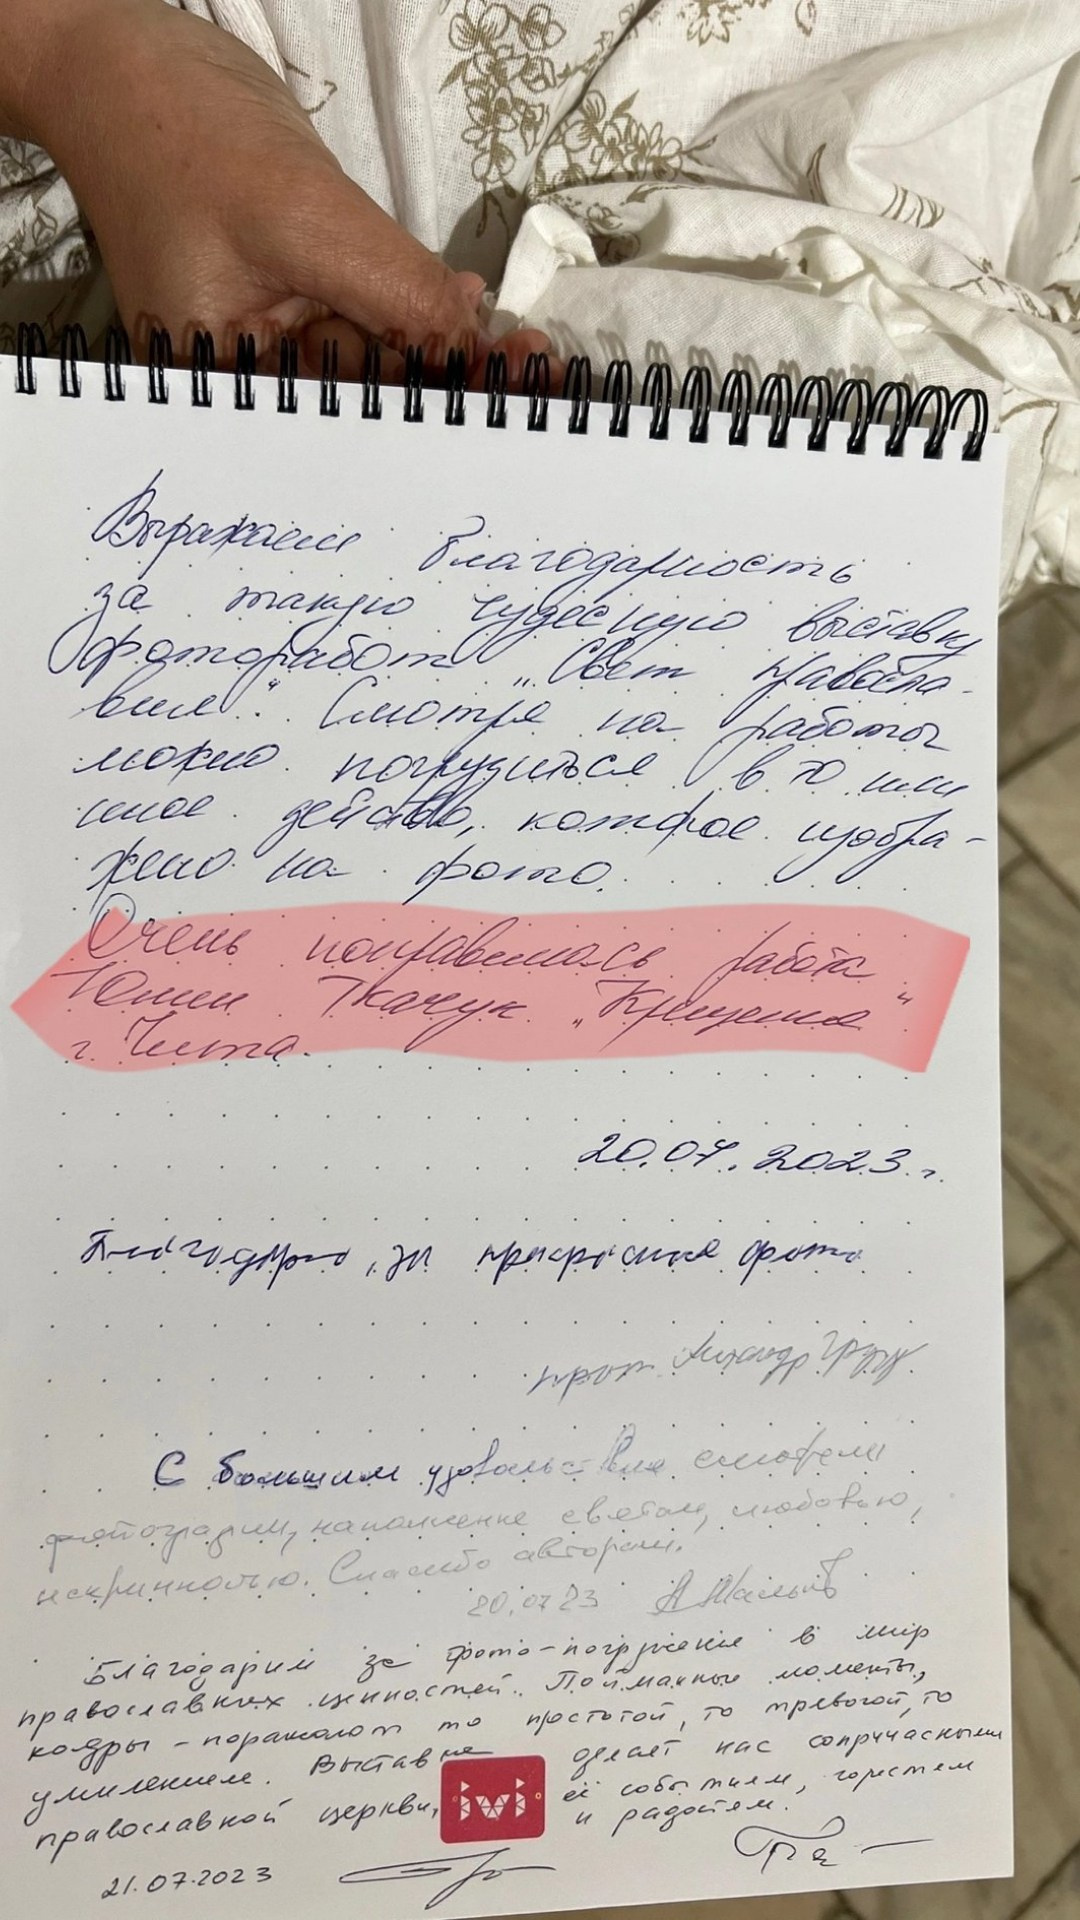 Выражаем благодарность
за такую чудесную выставку
фоторабот „Свет правосла-
вия“. Смотря на работы
можно погрузиться в то или
иное действо, которое изобра-
жено на фото.
Очень понравилась работа
Юлии Ткачук „Крещение“
г. Чита.
20.07.2023 г.
Благодарю, за прекрасные фото
прот. Александр
С большим удовольствием смотрели
фотографии, наполненные светом, любовью,
искринностью. Спасибо авторам.
20.07.23
Благодарим за фото-погружение в мир
православных ценностей. Пойманные моменты,
кадры - поражают то простотой, то тревогой, то
умилением. Выставка делает нас сопричасными
православной церкви, её событиям, горестям
и радостям.
ivi
21.07.2023